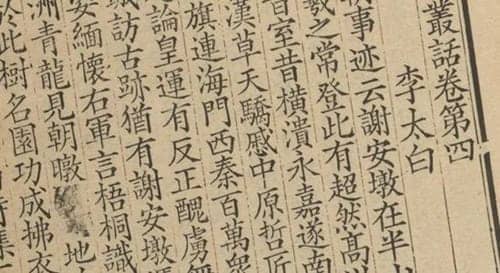 叢話卷第四
李太白
事迹云謝安墩在半
羲之常登此有超然高
晉室昔橫潰永嘉遂南
漢草天驕蹙中原哲匠
旗連海門西秦百萬衆
論皇運有反正醜虜無
城訪古跡猶有謝安墩
安緬懷右軍言梧桐識
洲青龍見朝暾地
於此樹名園功成拂衣